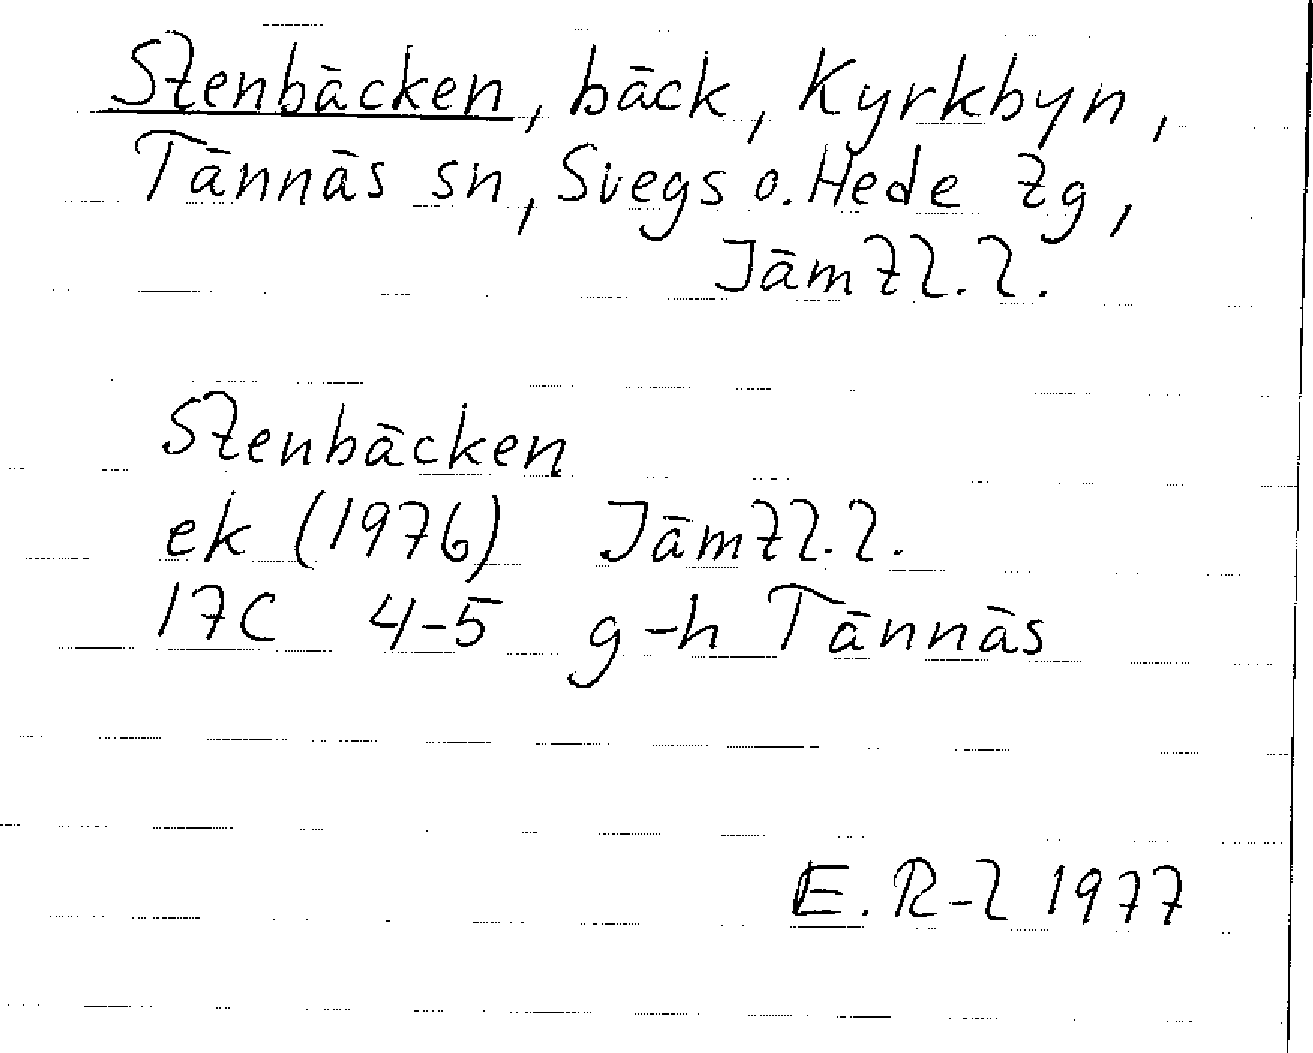 Stenbäcken, bäck, Kyrkbyn,
Tännäs sn, Svegs o. Hede tg,
Jämtl. l.
Stenbäcken
ek (1976) Jämtl. l.
17C 4-5 g-h Tännäs
E. R-l 1977